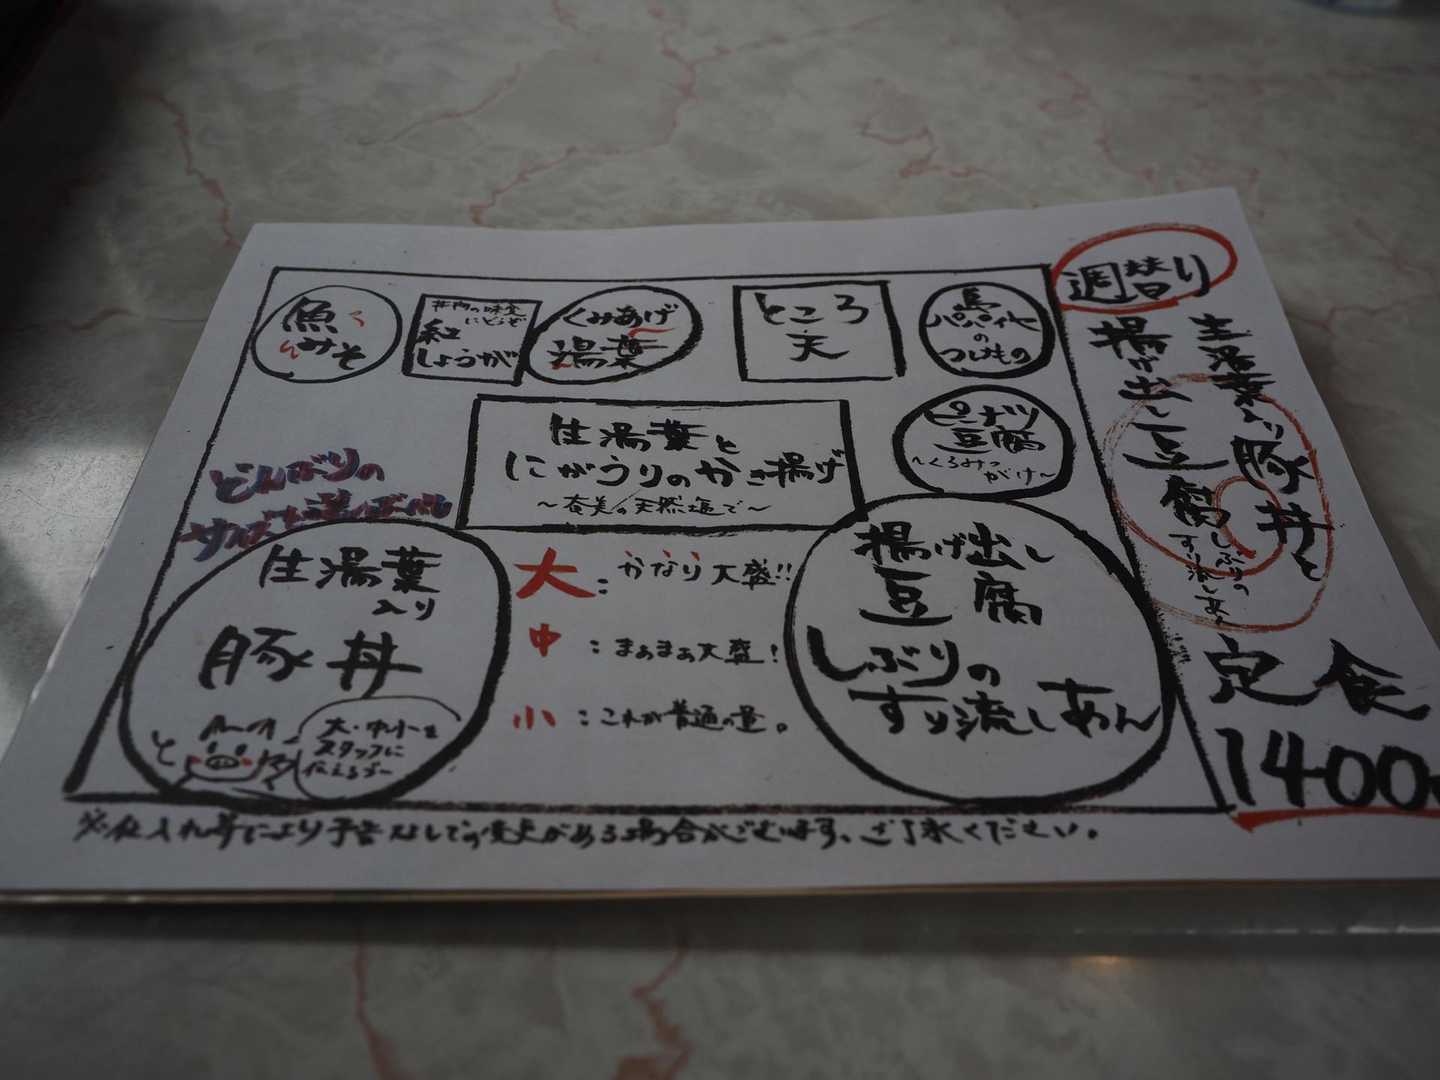 週替り
生湯葉入り豚丼と
揚げ出し豆腐
しぶりの
すり流しあん
定食
1400
魚
みそ
丼物の味変
にどうぞ
紅
しょうが
くみあげ
湯葉
ところ
天
島
パパイヤ
の
つけもの
ピーナツ
豆腐
〜くろみつ
がけ〜
生湯葉と
にがうりのかき揚げ
〜奄美の天然塩で〜
どんぶりの
サイズも選べます
生湯葉
入り
豚丼
大・中・小を
スタッフに
伝えるブー
大:かなり大盛!!
中:まぁまぁ大盛!
小:これが普通の量。
揚げ出し
豆腐
しぶりの
すり流しあん
※仕入れ等により予告なしでの変更がある場合がございます、ご了承ください。